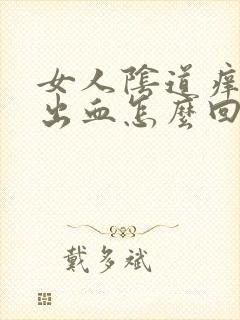 女人陰道癢
出血怎麼回
戴多斌